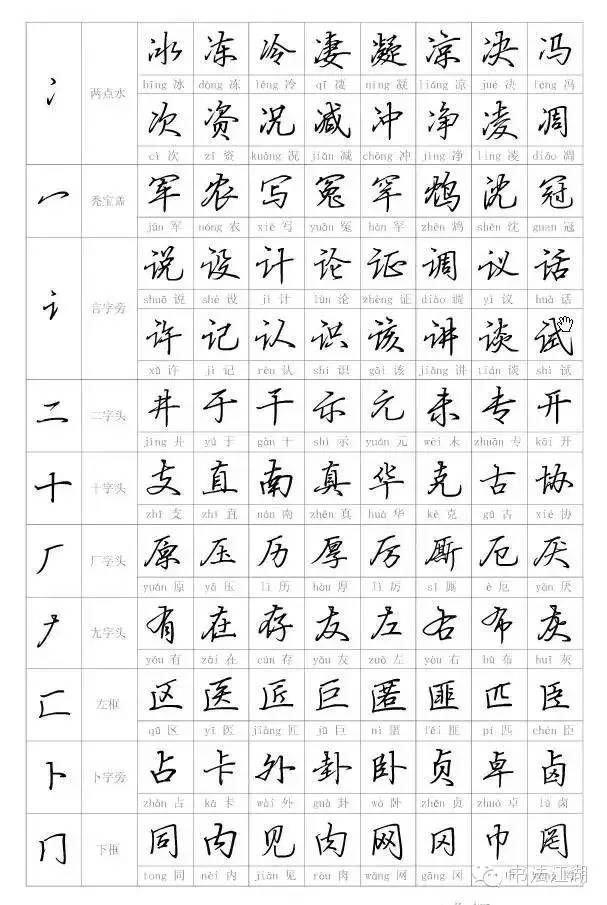 冰 冻 冷 凄 凝 凉 决 冯
冫 两点水
bīng 冰 dòng 冻 lěng 冷 qī 凄 níng 凝 liáng 凉 jué 决 féng 冯
次 资 况 减 冲 净 凌 凋
cì 次 zī 资 kuàng 况 jiǎn 减 chōng 冲 jìng 净 líng 凌 diāo 凋
冖 秃宝盖 军 农 写 冤 罕 鸩 沈 冠
jūn 军 nóng 农 xiě 写 yuān 冤 hǎn 罕 zhèn 鸩 shěn 沈 guan 冠
说 设 计 论 证 调 议 话
讠 言字旁
shuō 说 shè 设 jì 计 lùn 论 zhèng 证 diào 调 yì 议 huà 话
许 记 认 识 该 讲 谈 试
xǔ 许 jì 记 rèn 认 shí 识 gāi 该 jiǎng 讲 tán 谈 shì 试
二 二字头 井 于 干 示 元 未 专 开
jǐng 井 yú 于 gàn 干 shì 示 yuán 元 wèi 未 zhuān 专 kāi 开
十 十字头 支 直 南 真 华 克 古 协
zhī 支 zhí 直 nán 南 zhēn 真 huá 华 kè 克 gǔ 古 xié 协
厂 厂字头 原 压 历 厚 厉 厮 厄 厌
yuán 原 yā 压 lì 历 hòu 厚 lì 厉 sī 厮 è 厄 yàn 厌
𠂇 尢字头 有 在 存 友 左 右 布 灰
yǒu 有 zài 在 cún 存 yǒu 友 zuǒ 左 yòu 右 bù 布 huī 灰
匚 左框 区 医 匠 巨 匿 匪 匹 臣
qū 区 yī 医 jiàng 匠 jù 巨 nì 匿 fěi 匪 pǐ 匹 chén 臣
卜 卜字旁 占 卡 外 卦 卧 贞 卓 卤
zhàn 占 kǎ 卡 wài 外 guà 卦 wò 卧 zhēn 贞 zhuó 卓 lǔ 卤
冂 下框 同 内 见 肉 网 冈 巾 罔
tong 同 nèi 内 jiàn 见 ròu 肉 wǎng 网 gāng 冈
书法江湖